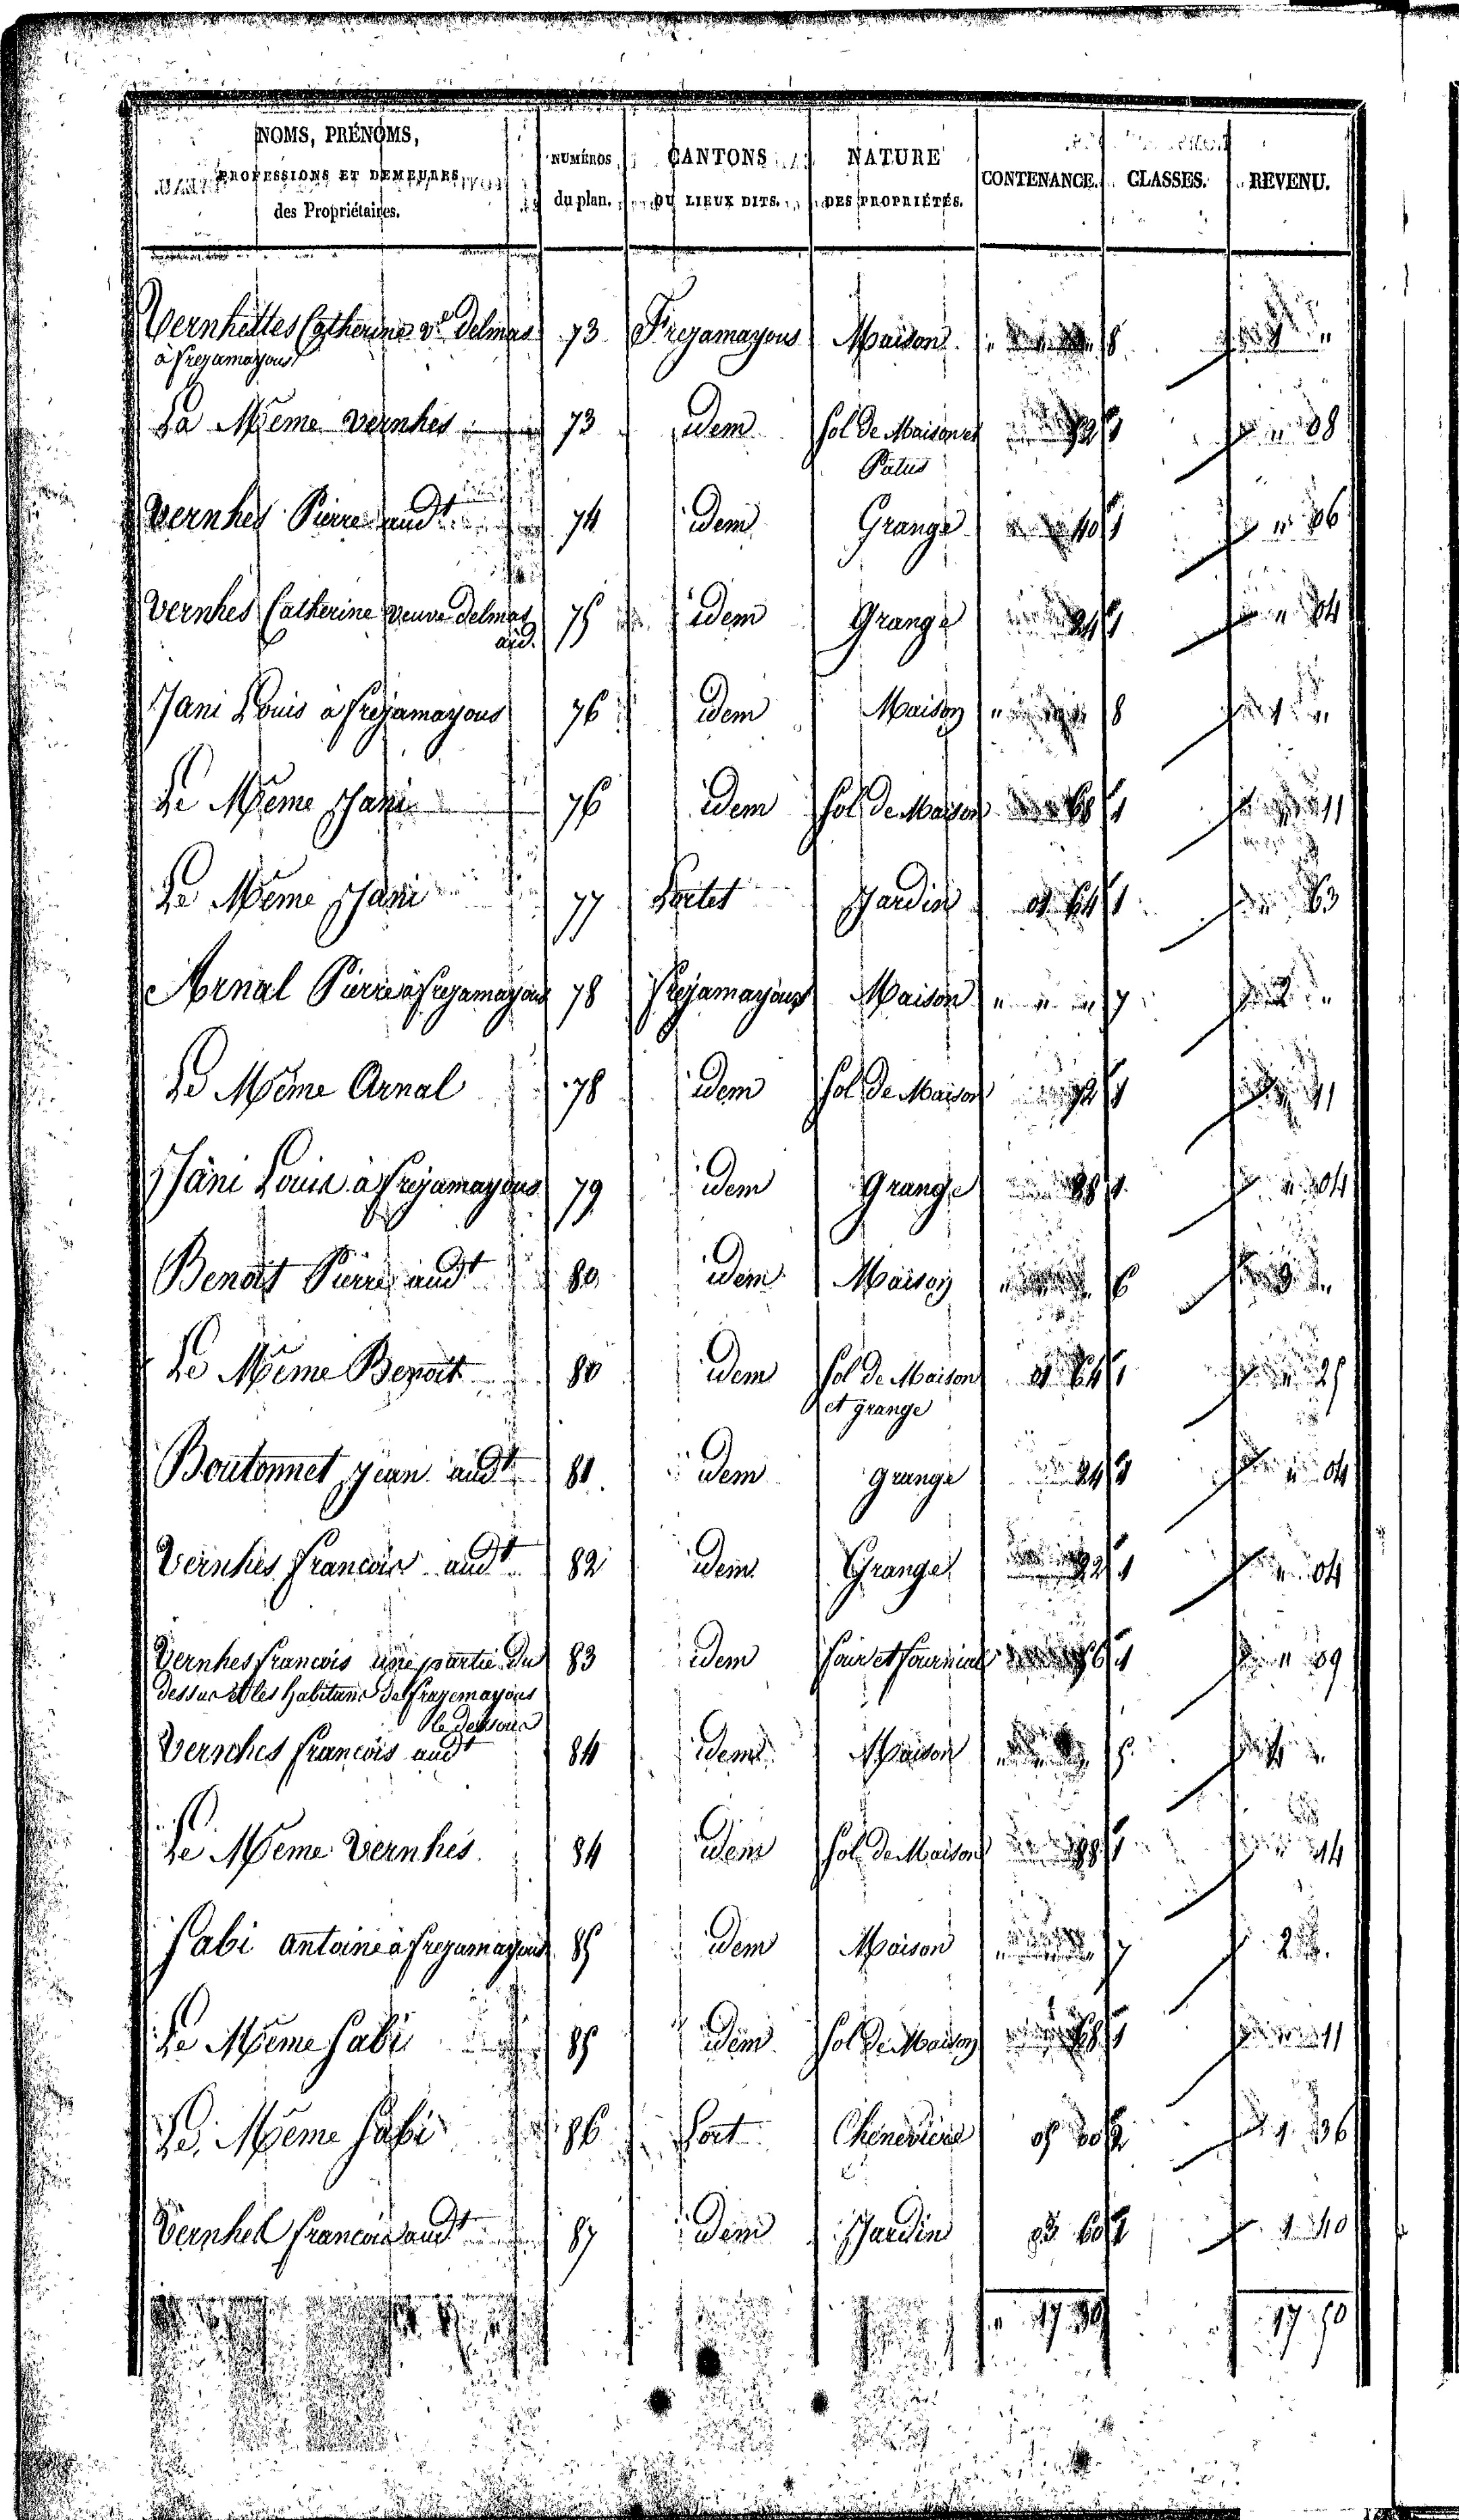 NOMS, PRÉNOMS,
PROFESSIONS ET DEMEURES
des Propriétaires.
NUMÉROS
du plan.
CANTONS
OU LIEUX DITS.
NATURE
DES PROPRIÉTÉS.
CONTENANCE.
CLASSES.
REVENU.
Vernhettes Catherine ve Delmas 73 Frejamayous Maison 8
à Frejamayous
La Même Vernhes 73 idem Sol de Maison et 1 " 08
Patus
Vernhes Pierre audt 74 idem Grange 40 1 " 06
Vernhes Catherine veuve Delmas 75 idem Grange 24 1 " 04
aud.
Jani Louis à frejamayous 76 idem Maison " 8 1 "
Le Même Jani 76 idem Sol de Maison 68 1 11
Le Même Jani 77 Jardin 01 64 1 " 63
Arnal Pierre à frejamayous 78 frejamayous Maison " " " 7 2 "
Le Même Arnal 78 idem Sol de Maison 72 1 11
Jani Louis à frejamayous 79 idem Grange 1 " 04
Benoit Pierre audt 80 idem Maison 6 "
Le Même Benoit 80 idem Sol de Maison 01 64 1 " 25
et grange
Boutonnet Jean audt 81 idem grange 24 1 " 04
Vernhes francois audt 82 idem Grange 22 1 " 04
Vernhes francois une partie du 83 idem four et fourniol 56 1 " 09
dessus et les habitans de frejamayous
le dessous
Vernhes francois audt 84 idem Maison 5
Le Même Vernhes 84 idem Sol de Maison 88 1 14
Sabi antoine à frejamayous 85 idem Maison 7 2 "
Le Même Sabi 85 idem Sol de Maison 68 1 11
Le Même Sabi 86 hort Cheneviere 05 2 1 36
Vernhes francois audt 87 idem Jardin 03 60 1 40
" 17
17 50